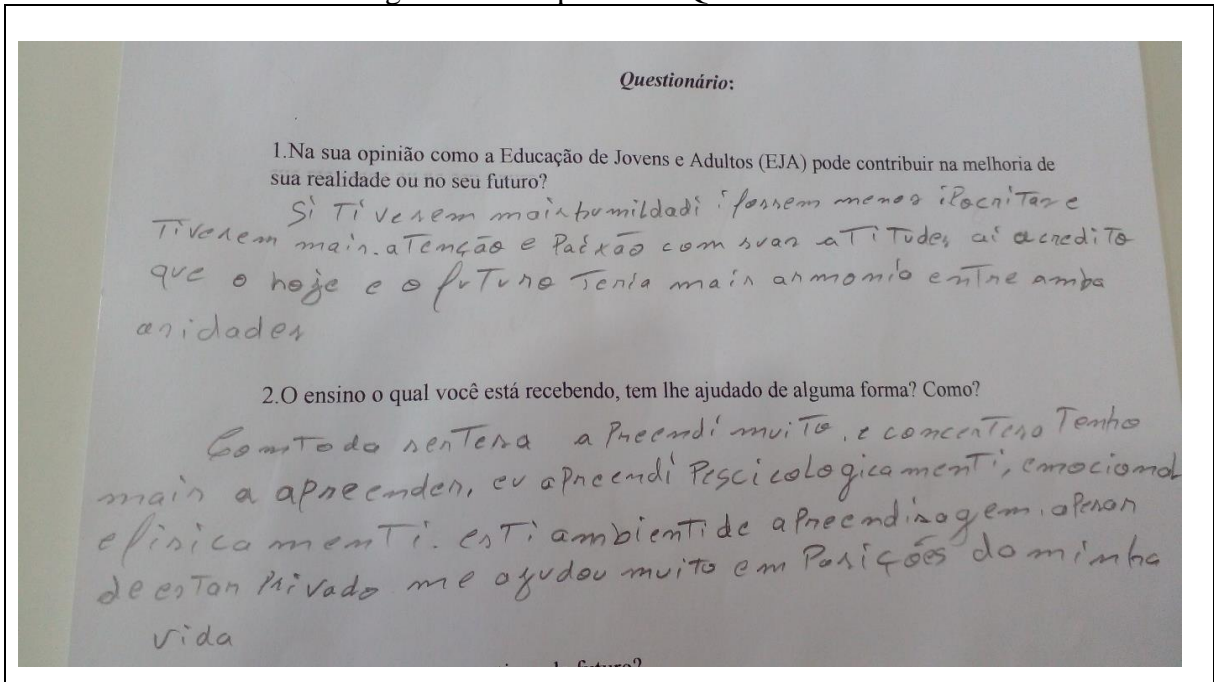 Questionário:
1.Na sua opinião como a Educação de Jovens e Adultos (EJA) pode contribuir na melhoria de
sua realidade ou no seu futuro?
Si Tiverem mais humildadi i fossem menos ipocritas e
Tiverem mais. aTemção e Paixão com suas aTiTudes, ai acrediTo
que o hoje e o fuTuro Teria mais armomia enTre amba
as idades
2.O ensino o qual você está recebendo, tem lhe ajudado de alguma forma? Como?
Com Toda serTesa a Preendi muiTo, e com cerTesa Tenho
mais a apreender, eu apreendi Pescicologicamenti, emocional
e fisicamenTi. esTi ambienTi de aPreendisagem. apesar
de esTar Privado me ajudou muito em Posições da minha
vida